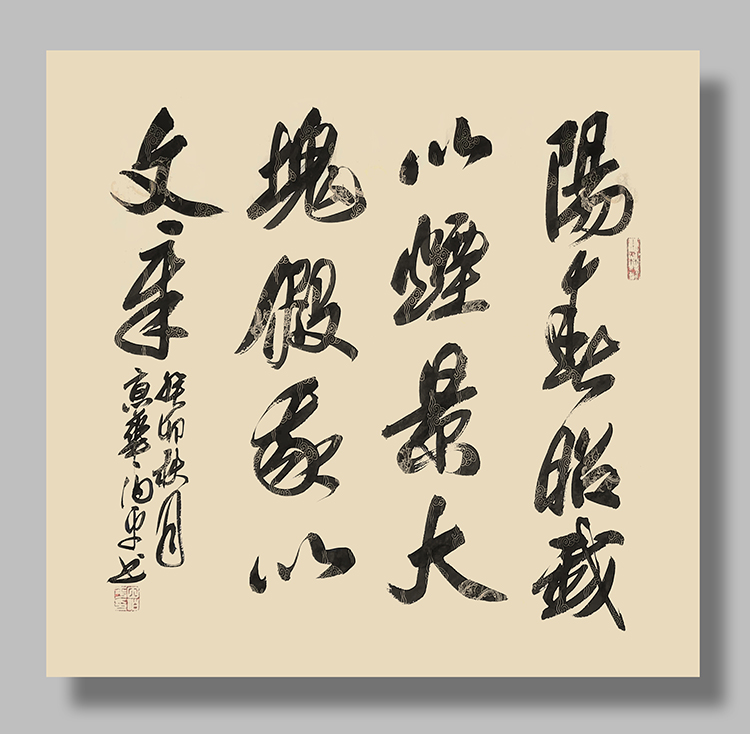 陽春昭我
以煙景大
塊假我以
文章
癸卯秋月
京華书